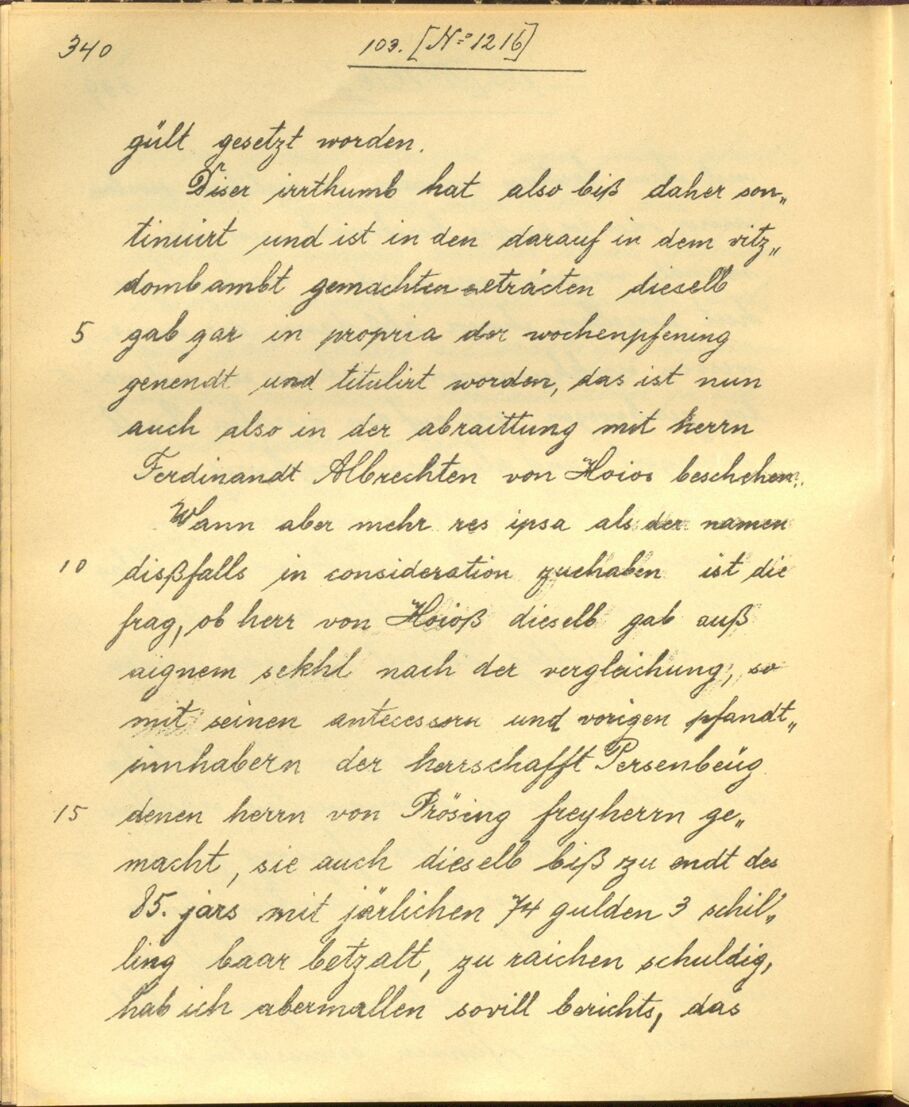 340 103. [No 1216]
gült gesetzt worden.
Diser irrthumb hat also biß daher con„
tinuirt und ist in den darauf in dem vitz„
dombambt gemachten eträcten dieselb
5 gab gar in propria der wochenpfening
genendt und titulirt worden, das ist nun
auch also in der abraittung mit herrn
Ferdinandt Albrechten von Hoios beschehen.
Wann aber mehr res ipsa als der namen
10 dißfalls in consideration zuhaben ist die
frag, ob herr von Hoioß dieselb gab auß
aignem sekhl nach der vergleichung, so
mit seinen antecessorn und vorigen pfandt„
innhabern der herrschafft Persenbeüg
15 denen herrn von Prösing freyherrn ge„
macht, sie auch dieselb biß zu endt des
85. jars mit järlichen 74 gulden 3 schil„
ling baar betzalt, zu raichen schuldig,
hab ich abermallen sovill berichts, das